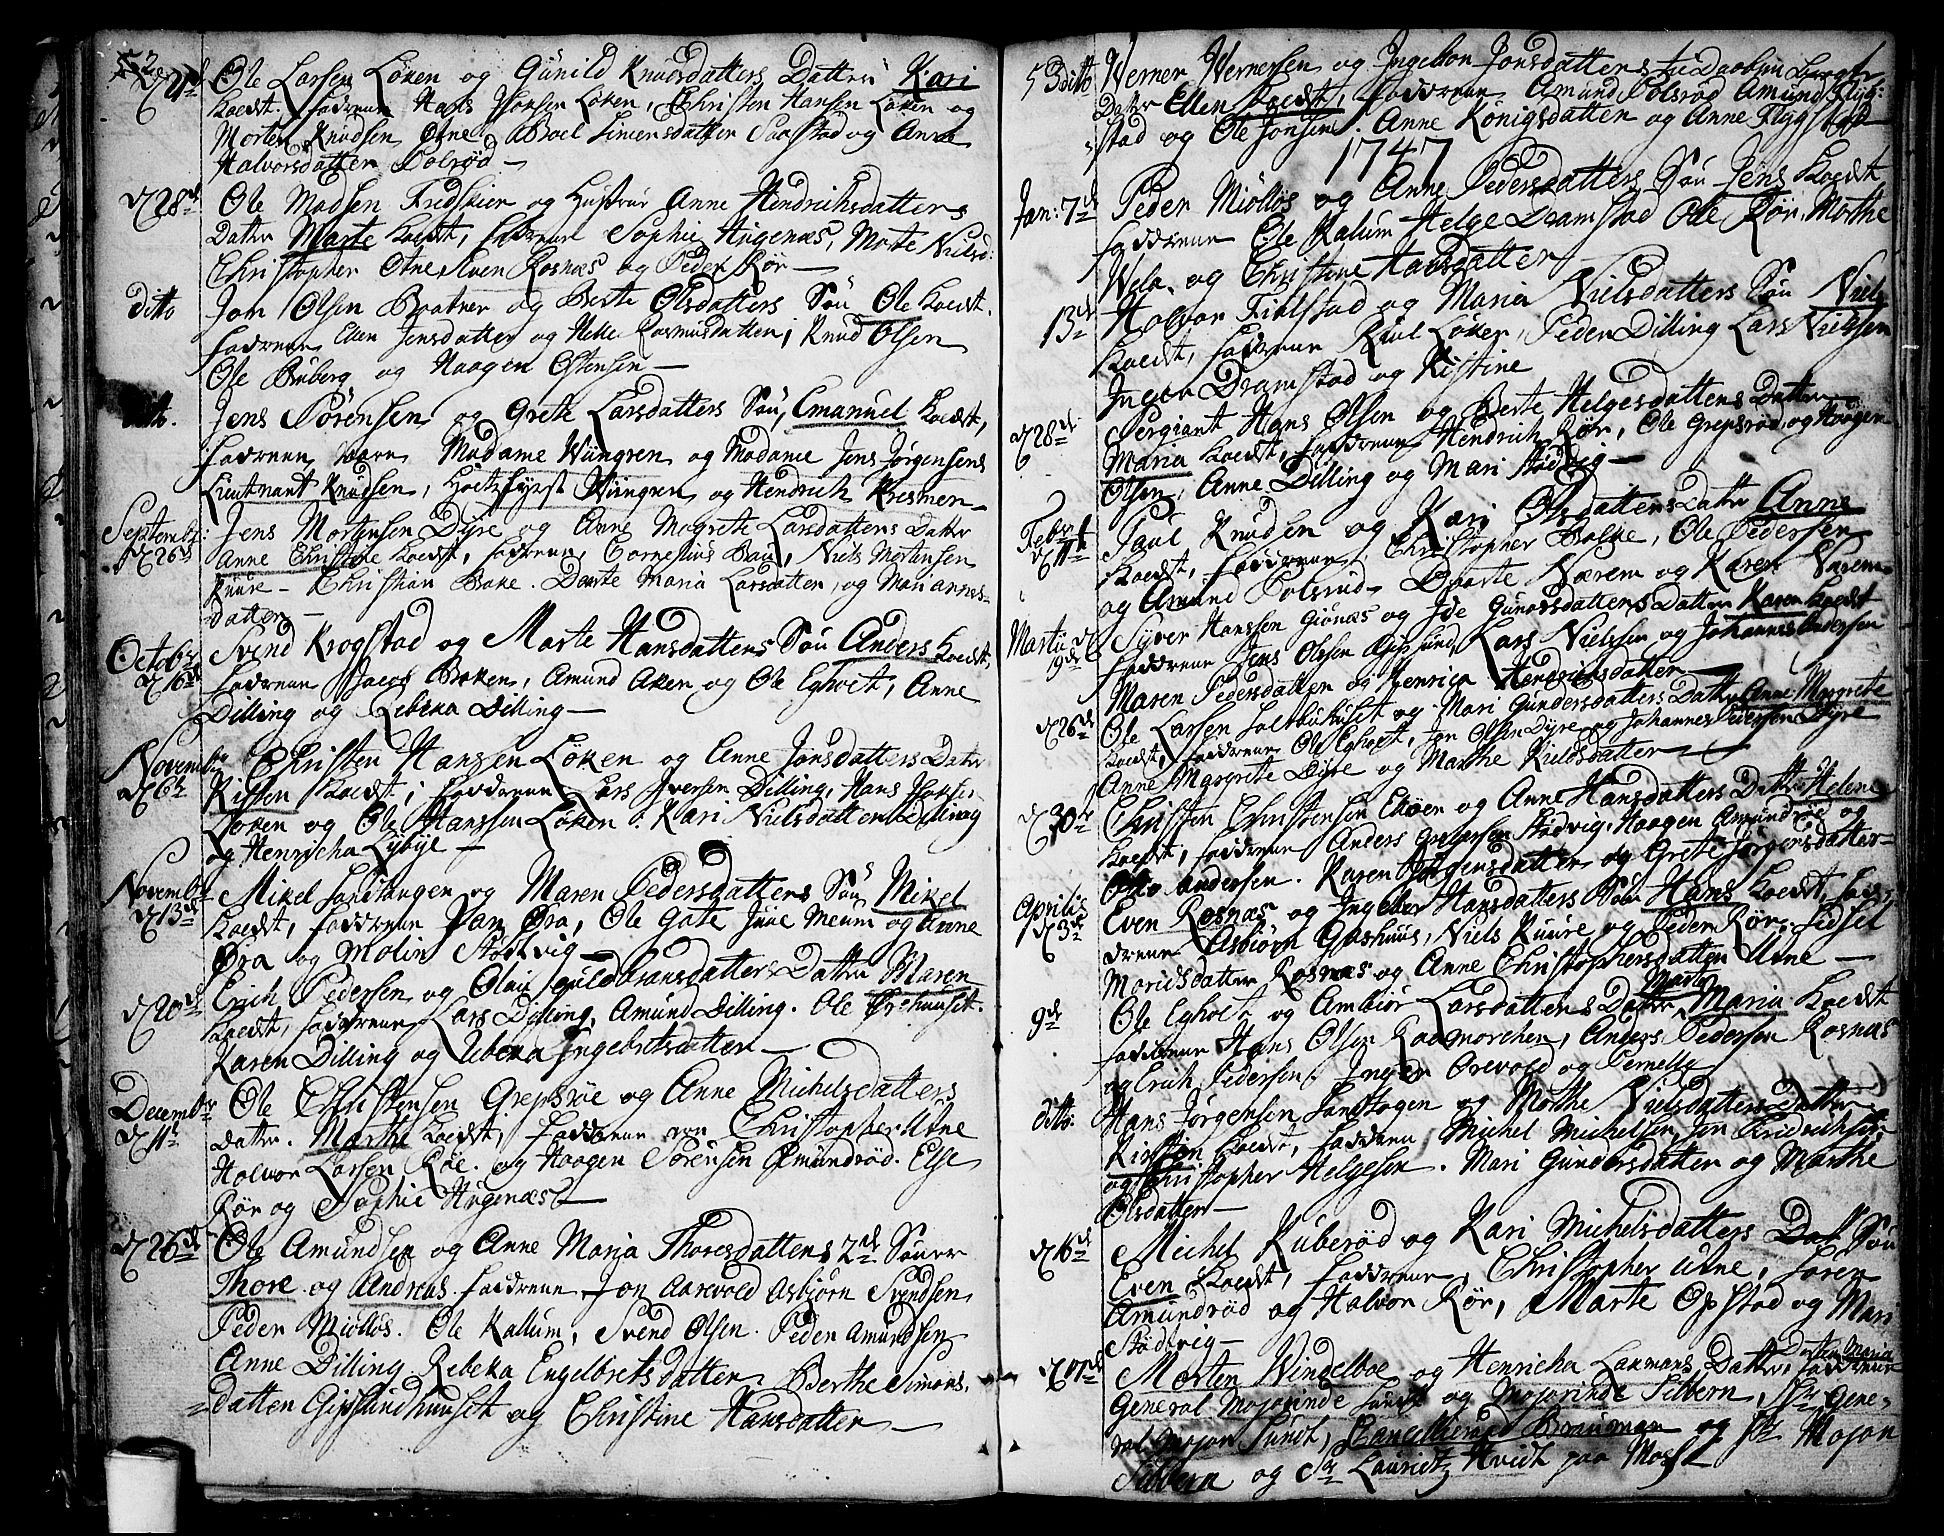 52
d 21d Ole Larsen Løken og Gunild Knudsdatters Datter Kari
Kaldt. Faddrene Hans Hansen Løken, Christen Hansen Løken og
Morten Knudsen Otne, Boel Simensdatter Saastad og Anne
Halvorsdatter Dolrød —
d 28d Ole Madsen Fredskier og Hustrue Anne Hendrichsdatters
Datter Marte Kaldt, Faddrene Sophie Hugenæs, Marte Nielsd:
Christopher Otne, Even Rosnæs og Peder Rør —
ditto Jon Olsen Baatner og Berte Olsdatters Søn Ole Kaldt.
Faddrene Ellen Jensdatter og Helle Rasmusdatter, Knud Olsen
Ole Buberg og Haagen Ostensen —
ditt. Jens Sørensen og Grete Larsdatters Søn, Emanuel Kaldt,
Faddrene vare Madame Wungren og Madame Jens Jørgensens
Lieutnant Knudsen, Wungren og Hendrich Kresmer —
Septembr: Jens Mortensen Dyre og Anne Magrete Larsdatters Datter
d 26d Anne Christine Kaldt, Faddrene, Cornelius Bau, Niels Mortensen
Ruure — Christian Bake. Dorte Maria Larsdatter, og Mari annes-
datter —
Octobr Svend Krogstad og Marte Hansdatters Søn Anders Kaldt,
d 16d Faddrene Jacob Boken, Amund Aken og Ole Egholt, Anne
Dilling og Rebeka Dilling —
Novembr Christen Hansen Løken og Anne Jonsdatters Datter
d 6te Kisten Kaldt, Faddrene Lars Iversen Dilling, Hans Hanse,
Løken og Ole Hanssen Løken. Kari Nielsdatter Dilling
og Henricha Lybye —
Novembr Mikel Sandtangen og Maren Pedersdatters Søn Mikel
d 13d Kaldt, Faddrene Øra, Ole Gate Meum og Anne
Øra og Molin Stødvig —
d 20d Erich Pedersen og Oluf Guldbransdatters Datter Maren
Kaldt, Faddrene Lars Dilling, Amund Dilling. Ole Ørehuuset.
Karen Dilling og Rebeka Ingebretsdatter —
Decembr Ole Christensen Grepsrøe og Anne Michelsdatters
d 11t Datter. Marthe Kaldt, Faddrene Christopher Utne
Halvor Larsen Røe. og Haagen Sørensen Amundrød. Else
Rør og Sophie Hugenæs —
d 26d Ole Amundsen og Anne Maria Thoresdatters 2de Sønner
Thore og Andreas Faddrene Jon Aarevold Asbjørn Svendsen
Peder Miølløs. Ole Kallum, Svend Olsen. Peder Amundsen
Anne Dilling Rebeka Engelbretsdatter Berthe Simons.
Datter Gipslundhuuset og Christine Hansdatter —
53 ditto Werner Wernersen og Ingebor Jonsdatters
Datter Ellen Kaldt, Faddrene Amund Dolsrød Amund Flyg:
stad og Ole Jonsen. Anne Königsdatter og Anne Flygstad
1747
Jan: 7d Peder Miølløs og Anne Pedersdatters Søn Jens Kaldt
Faddrene Ole Kalum Helge Dramstad Ole Rør, Mothe
Wela. og Christine Hansdatter —
13d Halvor Fielstad og Maria Nielsdatters Søn Niels
Kaldt, Faddrene Paul Løken, Peder Dilling Lars Nielsen
Inger Dramstad og Kistine
d 28d Sergiant Hans Olsen og Berte Helgesdatters Datter
Maria Kaldt, Faddrene Hendrich Rør, Ole Grepsrød, og Haagen
Olsen, Anne Dilling og Mari Stødvig —
Febr Paul Knudsen og Kari Olsdatters Datter Anne
d 11t Kaldt, Faddrene, Christopher Balke, Ole Pedersen
og Amund Dolsrud — Dorte Nærem og Karen Varem
Martii d Syver Hanssen Gionæs og Ide Gunersdatters Datter Karen Kaldt
19de Faddrene Jens Olssen Gipslund, Lars Nielssen og Johannes Andersen
Maren Pedersdatter og Henrica Hendrichsdatter —
d 26d Ole Larsen Saltbuhuset og Mari Gundersdatters Datter Anne Margrete
Kaldt, Faddrene Ole Egholt, Jon Olsen Dyre og Johannes Pedersen Dyre
Anne Margrete Dyre og Marthe Kieldsdatter —
d 30d Christen Christensen Ekøen og Anne Hansdatters Datter Helene
Kaldt, Faddrene Anders Gregersen Stødvig, Haagen Amundrøe og
Otto Andersen. Karen Jørgensdatter og Grete Jørgensdatter —
Aprilis Even Rosnæs og Ingebor Hansdatters Søn Hans Kaldt, Fad-
d 3d drene Asbiørn Gashuus, Niels Ruure og Peder Rør, Sidsel
Moridsdatter Rosnæs og Anne Christophersdatter Utne —
Marte
9de Ole Egholt og Ambiør Larsdatters Datter Maria Kaldt
Faddrene Hans Olsen Kadmorchen, Anders Pedersen Rosnæs
og Erich Pedersen. Inger Orevold og Pernelle
ditto: Hans Jørgensen Sandtagen og Mothe Nielsdatters Datter
Kirstin Kaldt, Faddrene Michel Michelsen, Jon Fridrichsen,
og Christopher Helgesen. Mari Gundersdatter og Marthe
Olsdatter —
d 16d Michel Kuberød og Kari Michelsdatters Dat Søn
Even Kaldt, Faddrene, Christopher Utne, Soren
Amundrød og Halvor Rør, Marte Opstad og Mari
Stødvig —
Datter Maria
d 17d Morten Windelboe og Henricha Laumans Datter, Faddrene
General Majorinde Sundt og Majorinde Sibbern, Hr Gene-
ral Major Sundt, Cancellieraad Brauman og Hr Major
Sibbern og Sr Lauridtz Hvidt paa Moss